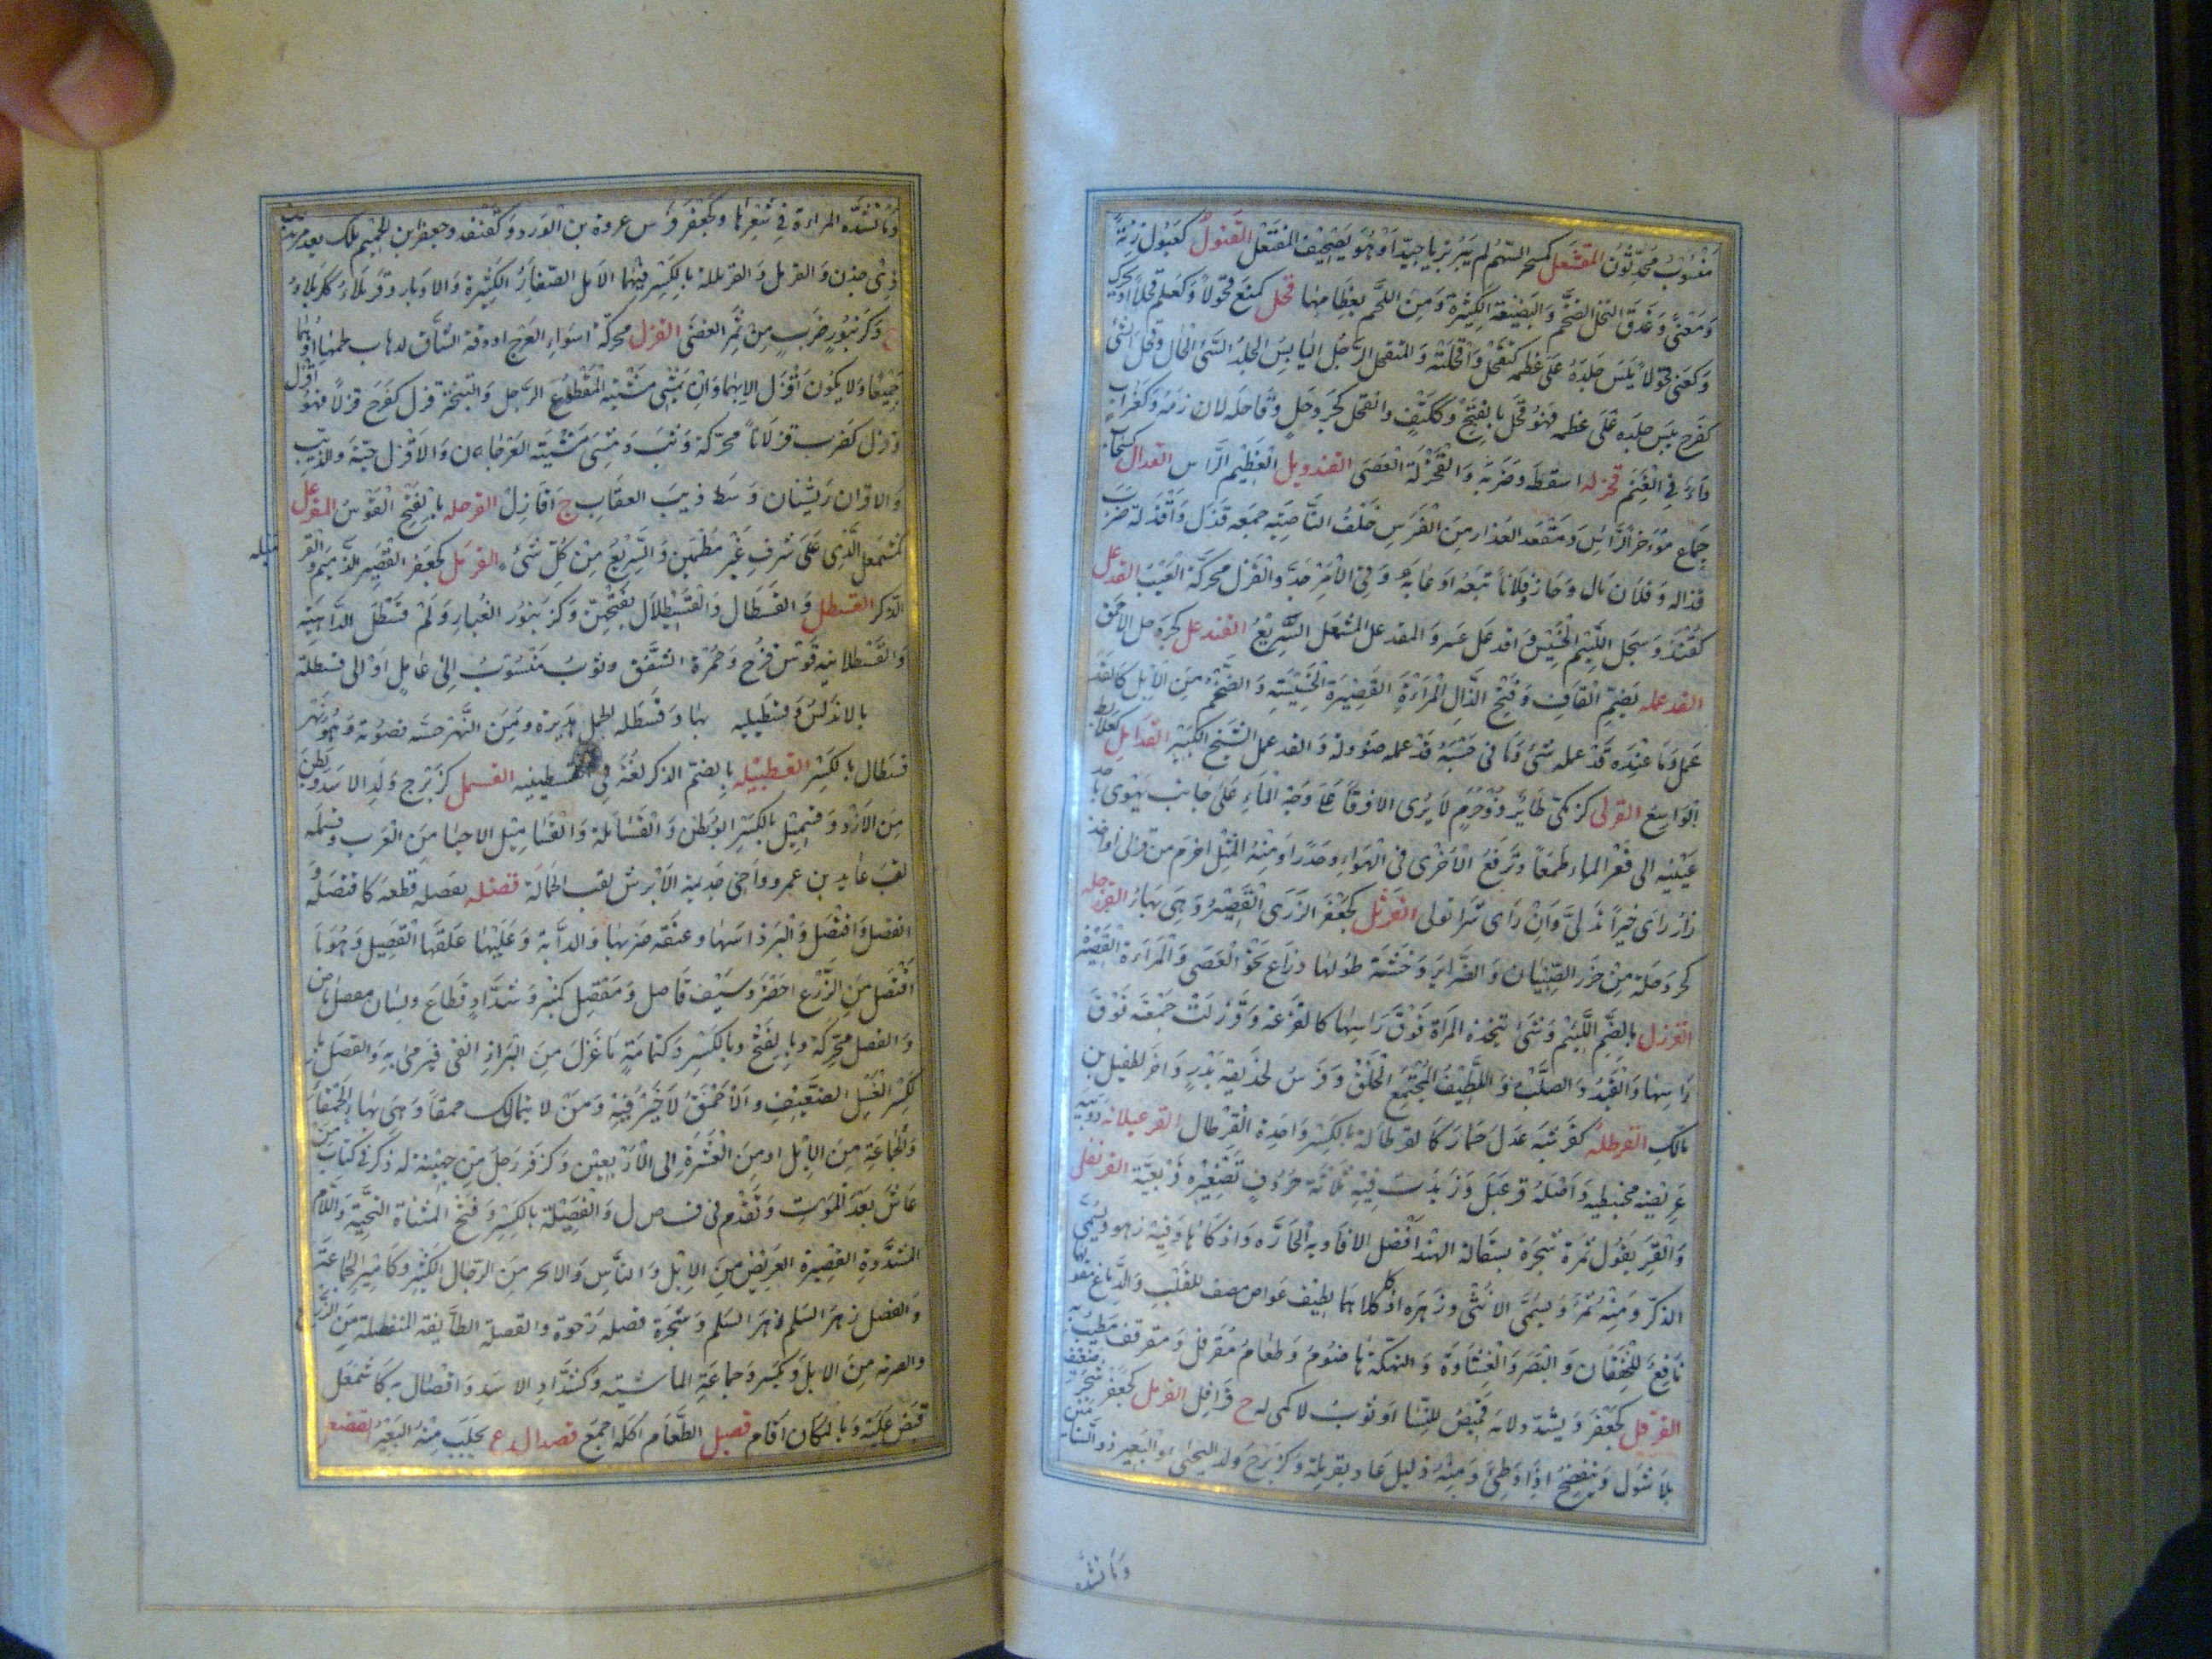 منسوب محدثون المقثعل كمسبحر السهم لم يبر بريا جيدا او هو تصحيف المقتعل القثول كعثول زنة
ومعنى وعذق النخل الضخم والبضعة الكبيرة ومن اللحم بعظامها قحل كمنع قحولا وكعلم قحلا او يحرك
وكعنى قحولا يبس جلده على عظمه كتقحل واقحلته والمتقحل الرجل اليابس الجلد السئ الحال وقحل الشئ
كفرح يبس جلده على عظمه فهو قحل بالفتح وككتف وانقحل كجردحل وقاحله لازمه وكغراب
داء في الغنم قحزله اسقطه وضربه والقحزلة العصى القندويل العظيم الراس القذال كسحاب
جماع مؤخر الراس ومقعد العذار من الفرس خلف الناصية جمعه قذل واقذلة ضرب
قذاله وفلان مال وجار وفلانا تبعه او عابه وفى الامر جد والقذل محركة العيب القذعل
كقنفذ وسبحل اللئيم الخسيس واقذعل عسر والمقذعل المشمعل السريع القنذعل كجردحل الاحمق
القذعمله بضم القاف وفتح الذال المراءة القصيرة الخسيسة والضخم من الابل كالقذ
عمل وما عنده قذعملة شئ وما في حسبه قذعمله صؤولة والقذعمل الشيخ الكبير القذامل كعلابط
الواسع القرلى كزمكى طائر ذو حزم لا يرى الا فرقا على وجه الماء على جانب يهوى باحد
عينيه الى قعر الماء طمعا وترفع الاخرى فى الهواء حذرا ومنه المثل احزم من قرلى او احذر
ان راى خيرا تدلى وان راى شرا تولى القرثل كجعفر الزرى القصير وهى بهاء القرزحله
كجردحلة من خرز الصبيان والضراير وخشبة طولها ذراع نحو العصى والمراءة القصيرة
القرزل بالضم اللئيم وشئ تتخذه المراة فوق راسها كالقنزعة وقرزلت جمعته فوق
راسها والقيد والصلب واللطيف المجتمع الخلق وفرس لحذيفة بن بدر واخر لطفيل بن
مالك القرطلة كقرشبة عدل حمار كالقرطالة بالكسر واحدة القرطال القرعبلانه دويبة
عريضه محبنطيه واصله قرعبل وزيدت فيه ثلاثة حروف تصغيره قريعبة القرنفل
والقرنفول ثمرة شجرة بسفالة الهند افضل الافاويه الحارة واذكاها وفيه زهو ويسمى
الذكر ومنه ثمر ويسمى الانثى وزهره اذكى كلاهما لطيف غواص مصف للقلب والدماغ مقو لها
نافع للخفقان والبصر والغشاوة والنكهة هاضوم وطعام مقرفل ومقرنف مطيب به
القرقل كجعفر ويشدد لامه قميص للنساء او ثوب لا كمى له ج قراقل القرمل كجعفر شجر ضعيف
بلا شوك وينفضخ اذا وطئ ومنه ذليل عاذ بقرملة وكزبرج ولد البختى او البعير ذو السنامين
وما تشده
وما تشده المراءة في شعرها وكجعفر فرس عروة بن الورد وكقنفذ وجعفر ابن الحميم ملك بعد مرثد بن
ذي جدن والقرمل والقرملية بالكسر فيهما الابل الصغار الكثيرة والاوبار وقرملاء ككربلاء
وكزنبور ضرب من ثمر الغضى القزل محركة اسواء العرج او دقة الساق لذهاب لحمها او هما
جميعا ولا يكون اقزل الا بهما وان يمشى مشية المقطوع الرجل والتبختر قزل كفرح قزلا فهو اقزل
وقزل كضرب قزلانا محركة وثب ومشى مشية العرجان والاقزل حية والذيب
والاقزلان ريشتان وسط ذنب العقاب ج اقازل القزحلة بالفتح القوس المقزعل
كمشمعل الذى على شرف غير مطمئن والسريع من كل شئ القزمل كجعفر القصير الدميم والقز
الذكر القسطل والقسطال والقسطلان بفتحهن وكزنبور الغبار ولم قسطل الداهية
والقسطلانيه قوس قزح وحمرة الشفق وثوب منسوب الى عامل او الى قسطلة
بالاندلس وقسطيلية بها وقسطلة لجمل هديره ومن النهر حسه صوته وهو نهر
قسطال بالكسر القسطبيله بالضم الذكر لغة في القسطبينه القسمل كزبرج ولد الاسد وبطن
من الازد وقسميل بالكسر ابو بطن والقساملة والقساميل الاحيا من العرب وقسمله
لقب عايذ بن عمرو واخى جذيمة الابرش لقب الجمالة قصله يقصله قطعه كاقتصله و
انقصل واقتصل والبرذ اسها وعنقه ضربها والدابة وعليها علفها القصيل وهو ما
اقتصل من الزرع اخضر وسيف قاصل ومقصل كمنبر وشداد قطاع ولسان مقصل ماض
والقصل محركة وبالفتح وبالكسر وكثمامة ما عزل من البر اذا نقى فيرمى به والقصل با
لكسر الفسل الضعيف والاحمق لا خير فيه ومن لا يتمالك حمقا وهى بهاء الحمقاء
والجماعة من الابل او من العشرة الى الاربعين وكزفر رجل من جهينة له ذكر في كتاب من
عاش بعد الموت وتقدم فى ف ص ل والقصيلة بالكسر وفتح المثناة التحية واللام
المشددة القصيرة العريض من الابل والناس والاحر من الرجال الكثير وكامير الجماعة
والقصل زهر السلم وشجرة قصله رخوة والقصلة الطايفة المنقصلة من الزرع
والصرمة من الابل وكبسرة جماعة الماشيته وكشداد الاسد واقصال به كاشمعل
قبض عليه وبالمكان اقام قصبل الطعام اكله اجمع قصدال ع يجلب منه البعير القصعل